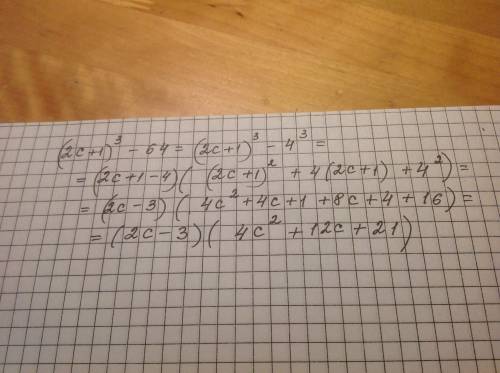 (2c+1)³ - 64 = (2c+1)³ - 4³ =
= (2c+1-4)( (2c+1)² + 4(2c+1) + 4²) =
= (2c-3) ( 4c²+4c+1 +8c+4+16) =
= (2c-3)( 4c² + 12c + 21)